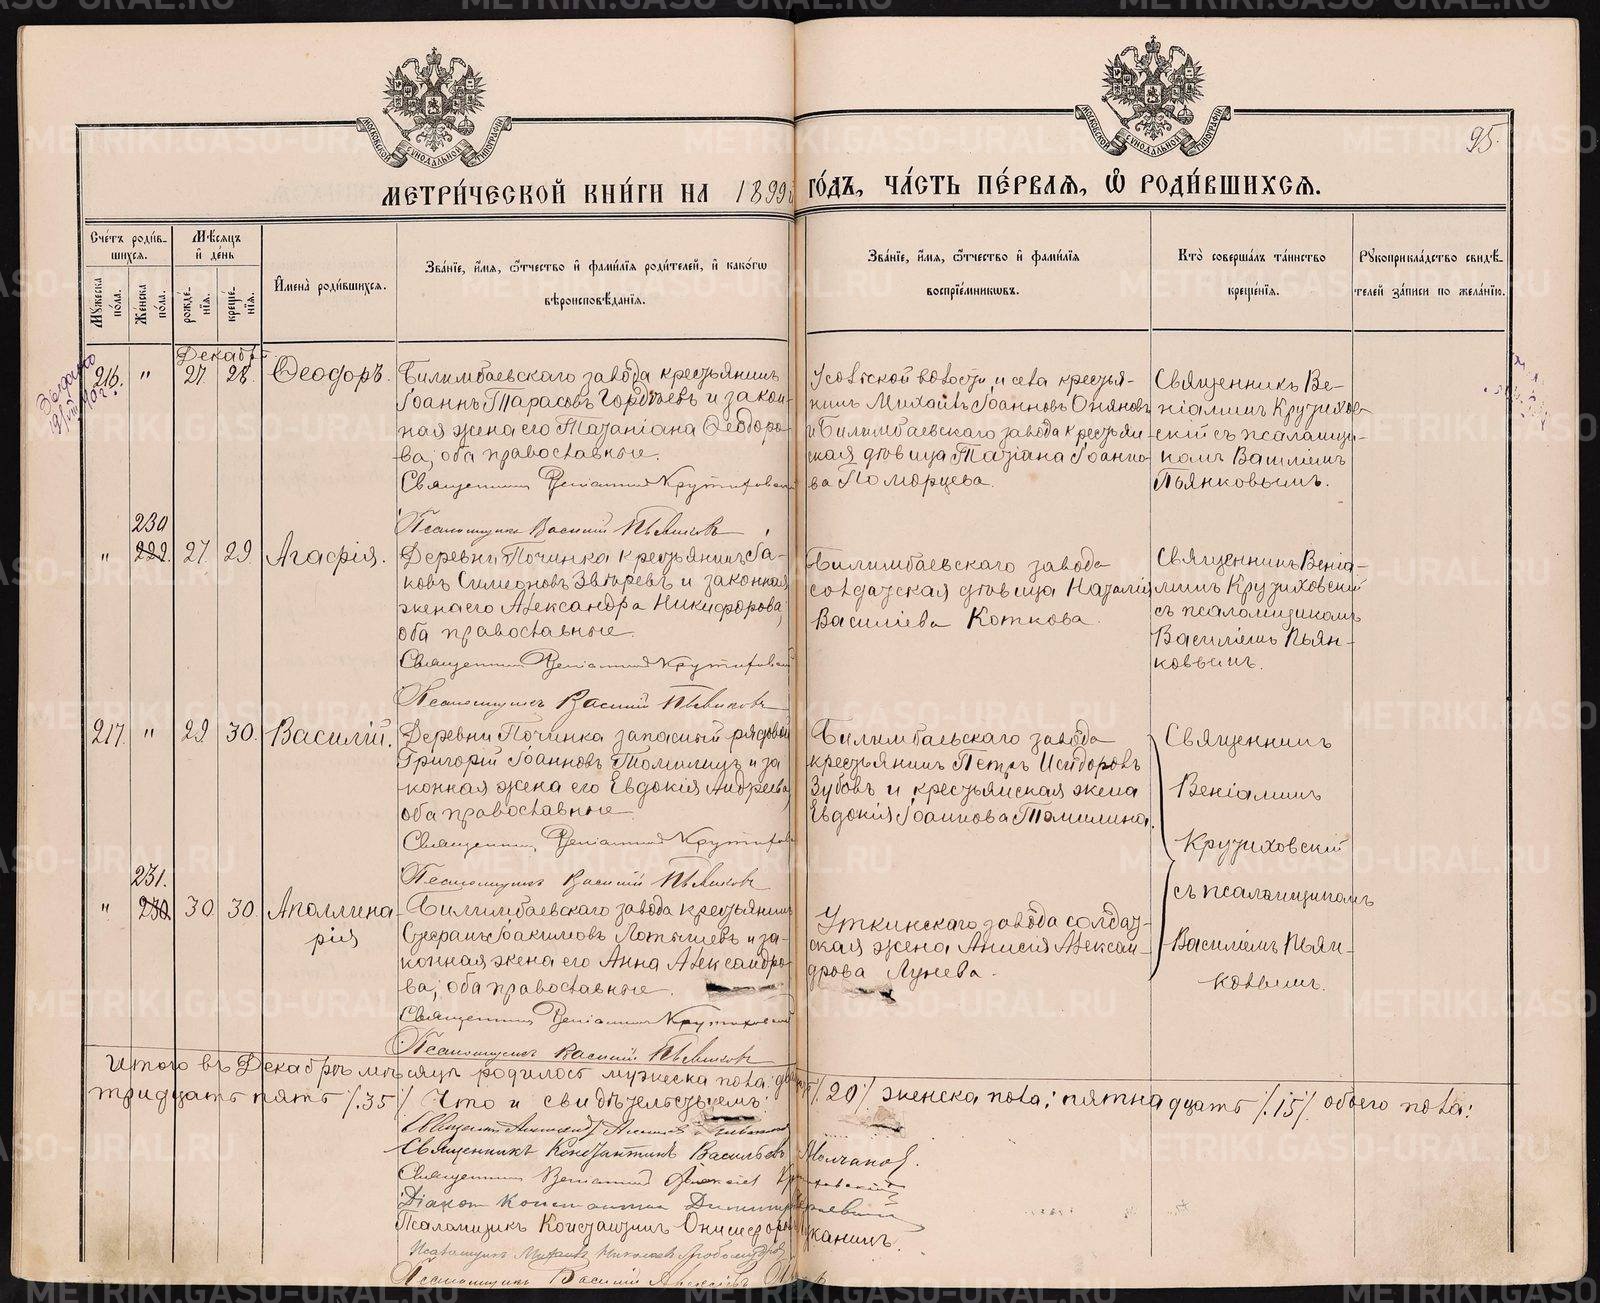 МОСКОВСКОЙ СѴНОДАЛЬНОЙ ТИПОГРАФІИ
МОСКОВСКОЙ СѴНОДАЛЬНОЙ ТИПОГРАФІИ
95.
МЕТРИ́ЧЕСКОЙ КНИ́ГИ НА 1899 ГО́ДЪ, ЧА́СТЬ ПЕ́РВАЯ, Ѽ РОДИ́ВШИХСЯ.
Счетъ роди́вшихся.
Мѣсяцъ и҆ де́нь
Мꙋ́жеска по́ла.
Же́нска по́ла.
рожде́нїя.
креще́нїя.
И҆мена̀ роди́вшихся.
Зва́нїе, и҆́мя, ѻ҆́тчество и҆ фами́лїя роди́телей, и҆ како́гѡ вѣроисповѣ́данїя.
Зва́нїе, и҆́мя, ѻ҆́тчество и҆ фами́лїя воспрїе́мникѡвъ.
Кто̀ соверша́лъ та́инство креще́нїя.
Рꙋкоприкла́дство свидѣ́телей за́писи по жела́нїю.
Декабрь
216. " 27 28. Ѳеодоръ.
Билимбаевскаго завода крестьянинъ
Іоаннъ Тарасовъ Горбуевъ и закон-
ная жена его Татіана Ѳеодоро-
ва, оба православные.
Священникъ Веніаминъ Крутиховскій
Псаломщикъ Василій Пьянковъ
волости и села крестья-
нинъ Михаилъ Іоанновъ
и Билимбаевскаго завода крестьян-
ская дѣвица Татіана Іоанно-
ва Поморцева.
Священникъ Ве-
ніаминъ Крутихов-
скій съ псаломщи-
комъ Василіемъ
Пьянковымъ.
230
" 229. 27 29 Агафія.
Деревни Починка крестьянинъ Іа-
ковъ Симеоновъ Звѣревъ и законная
жена его Александра Никифорова,
оба православные.
Священникъ Веніаминъ Крутиховскій
Псаломщикъ Василій Пьянковъ
Билимбаевскаго завода
солдатская дѣвица Наталія
Василіева Коткова.
Священникъ Веніа-
минъ Крутиховскій
съ псаломщикомъ
Василіемъ Пьян-
ковымъ.
217. " 29 30. Василій.
Деревни Починка запасный рядовой
Григорій Іоанновъ Томилинъ и за
конная жена его Евдокія Андреева,
оба православные.
Священникъ Веніаминъ Крутихов
Псаломщикъ Василій Пьянковъ
Билимбаевскаго завода
крестьянинъ Петръ Исидоровъ
Зубовъ и крестьянская жена
Евдокія Іоаннова Томилина.
Священникъ
Веніаминъ
Крутиховскій
съ псаломщикомъ
Василіемъ Пьян-
ковымъ.
231.
" 230 30. 30. Аполлина
рія
Билимбаевскаго завода крестьянинъ
Іоакимовъ Латышевъ и за-
конная жена его Анна Александро-
ва, оба православные.
Священникъ Веніаминъ Крутиховскій
Псаломщикъ Василій Пьянковъ
Уткинскаго завода солдат-
ская жена Анисія Алексан-
дрова Лунева.
Итого въ Декабрѣ мѣсяцѣ родилось мужеска пола: /.20/. женска пола: пятнадцать /.15/. обоего пола:
тридцать пять /.35/. Что и свидѣтельствуемъ:
Священникъ Константинъ Васильевъ Молчановъ.
Священникъ Веніаминъ Алексіевъ Крутиховскій
Діаконъ Константинъ
Псаломщикъ Константинъ Онисифоровъ
Псаломщикъ Михаилъ Николаевъ
Псаломщикъ Василій Алексѣевъ
METRIKI.GASO-URAL.RU